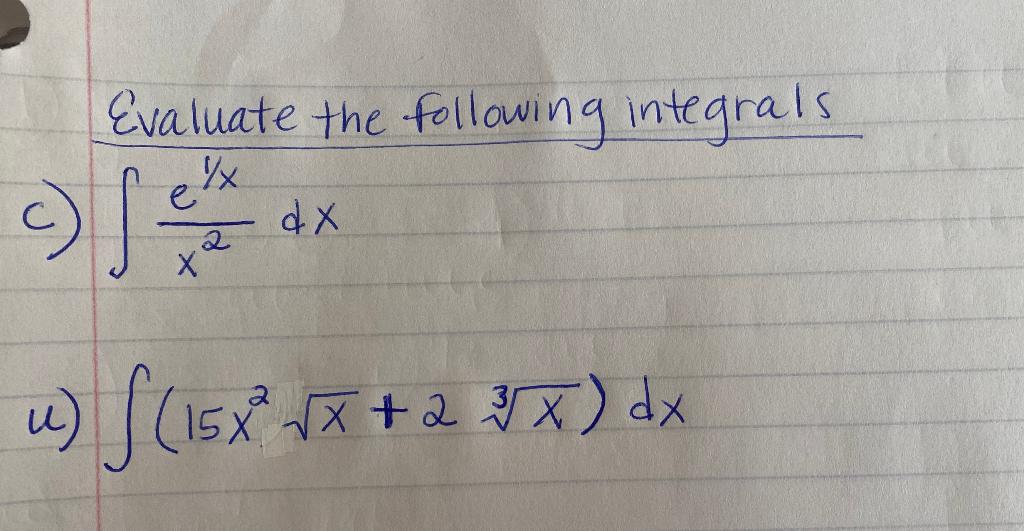 Evaluate the following integrals
c) ∫ e^{1/x} / x^2 dx
u) ∫(15x^2 √x + 2 ∛x) dx